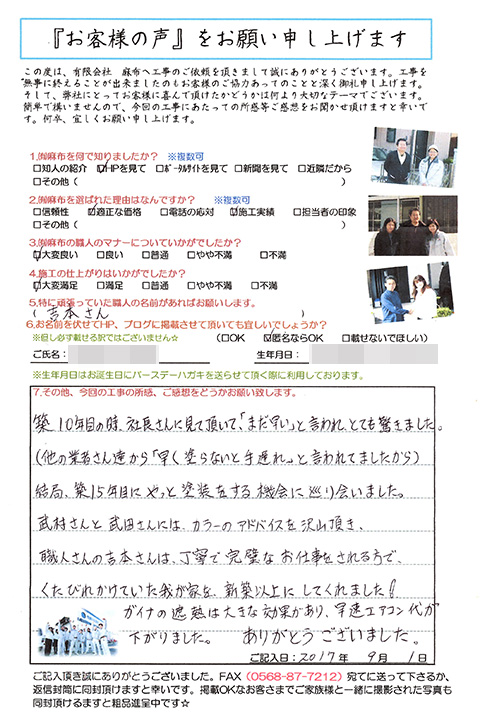 『お客様の声』をお願い申し上げます
この度は、有限会社 麻布へ工事のご依頼を頂きまして誠にありがとうございます。工事を
無事に終えることが出来ましたのもお客様のご協力あってのことと深く御礼申し上げます。
そして、弊社にとってお客様に喜んで頂けたかどうかは何より大切なテーマでございます。
簡単で構いませんので、今回の工事にあたっての所感等ご感想をお聞かせ頂けますと幸いで
す。何卒、宜しくお願い申し上げます。
1.㈲麻布を何で知りましたか? ※複数可
□知人の紹介 ☑HPを見て □ﾎﾟｰﾀﾙｻｲﾄを見て □新聞を見て □近隣だから
□その他( )
2.㈲麻布を選ばれた理由はなんですか? ※複数可
□信頼性 ☑適正な価格 □電話の応対 ☑施工実績 □担当者の印象
□その他( )
3.㈲麻布の職人のマナーについていかがでしたか?
☑大変良い □良い □普通 □やや不満 □不満
4.施工の仕上がりはいかがでしたか?
☑大変満足 □満足 □普通 □やや不満 □不満
5.特に頑張っていた職人の名前があればお願いします。
( 吉本さん )
6.お名前を伏せてHP、ブログに掲載させて頂いても宜しいでしょうか?
※但し必ず載せる訳ではございません☆ (□OK ☑匿名ならOK □載せないでほしい)
ご氏名: 生年月日:
※生年月日はお誕生日にバースデーハガキを送らせて頂く際に利用しております。
7.その他、今回の工事の所感、ご感想をどうかお願い致します。
築10年目の時、社長さんに見て頂いて、「まだ早い」と言われ、とても驚きました。
(他の業者さん達から「早く塗らないと手遅れ。」と言われてましたから)
結局、築15年目にやっと塗装をする機会に巡り会いました。
武村さんと武田さんには、カラーのアドバイスを沢山頂き、
職人さんの吉本さんは、丁寧で完璧なお仕事をされる方で、
くたびれかけていた我が家を、新築以上にしてくれました!
ガイナの遮熱は大きな効果があり、早速エアコン代が
下がりました。 ありがとうございました。
ご記入日:2017年 9月 1日
ご記入頂き誠にありがとうございました。FAX (0568-87-7212) 宛てに送って下さるか、
返信封筒に同封頂けますと幸いです。掲載OKなお客さまでご家族様と一緒に撮影された写真も
同封頂けるますと粗品進呈中です☆